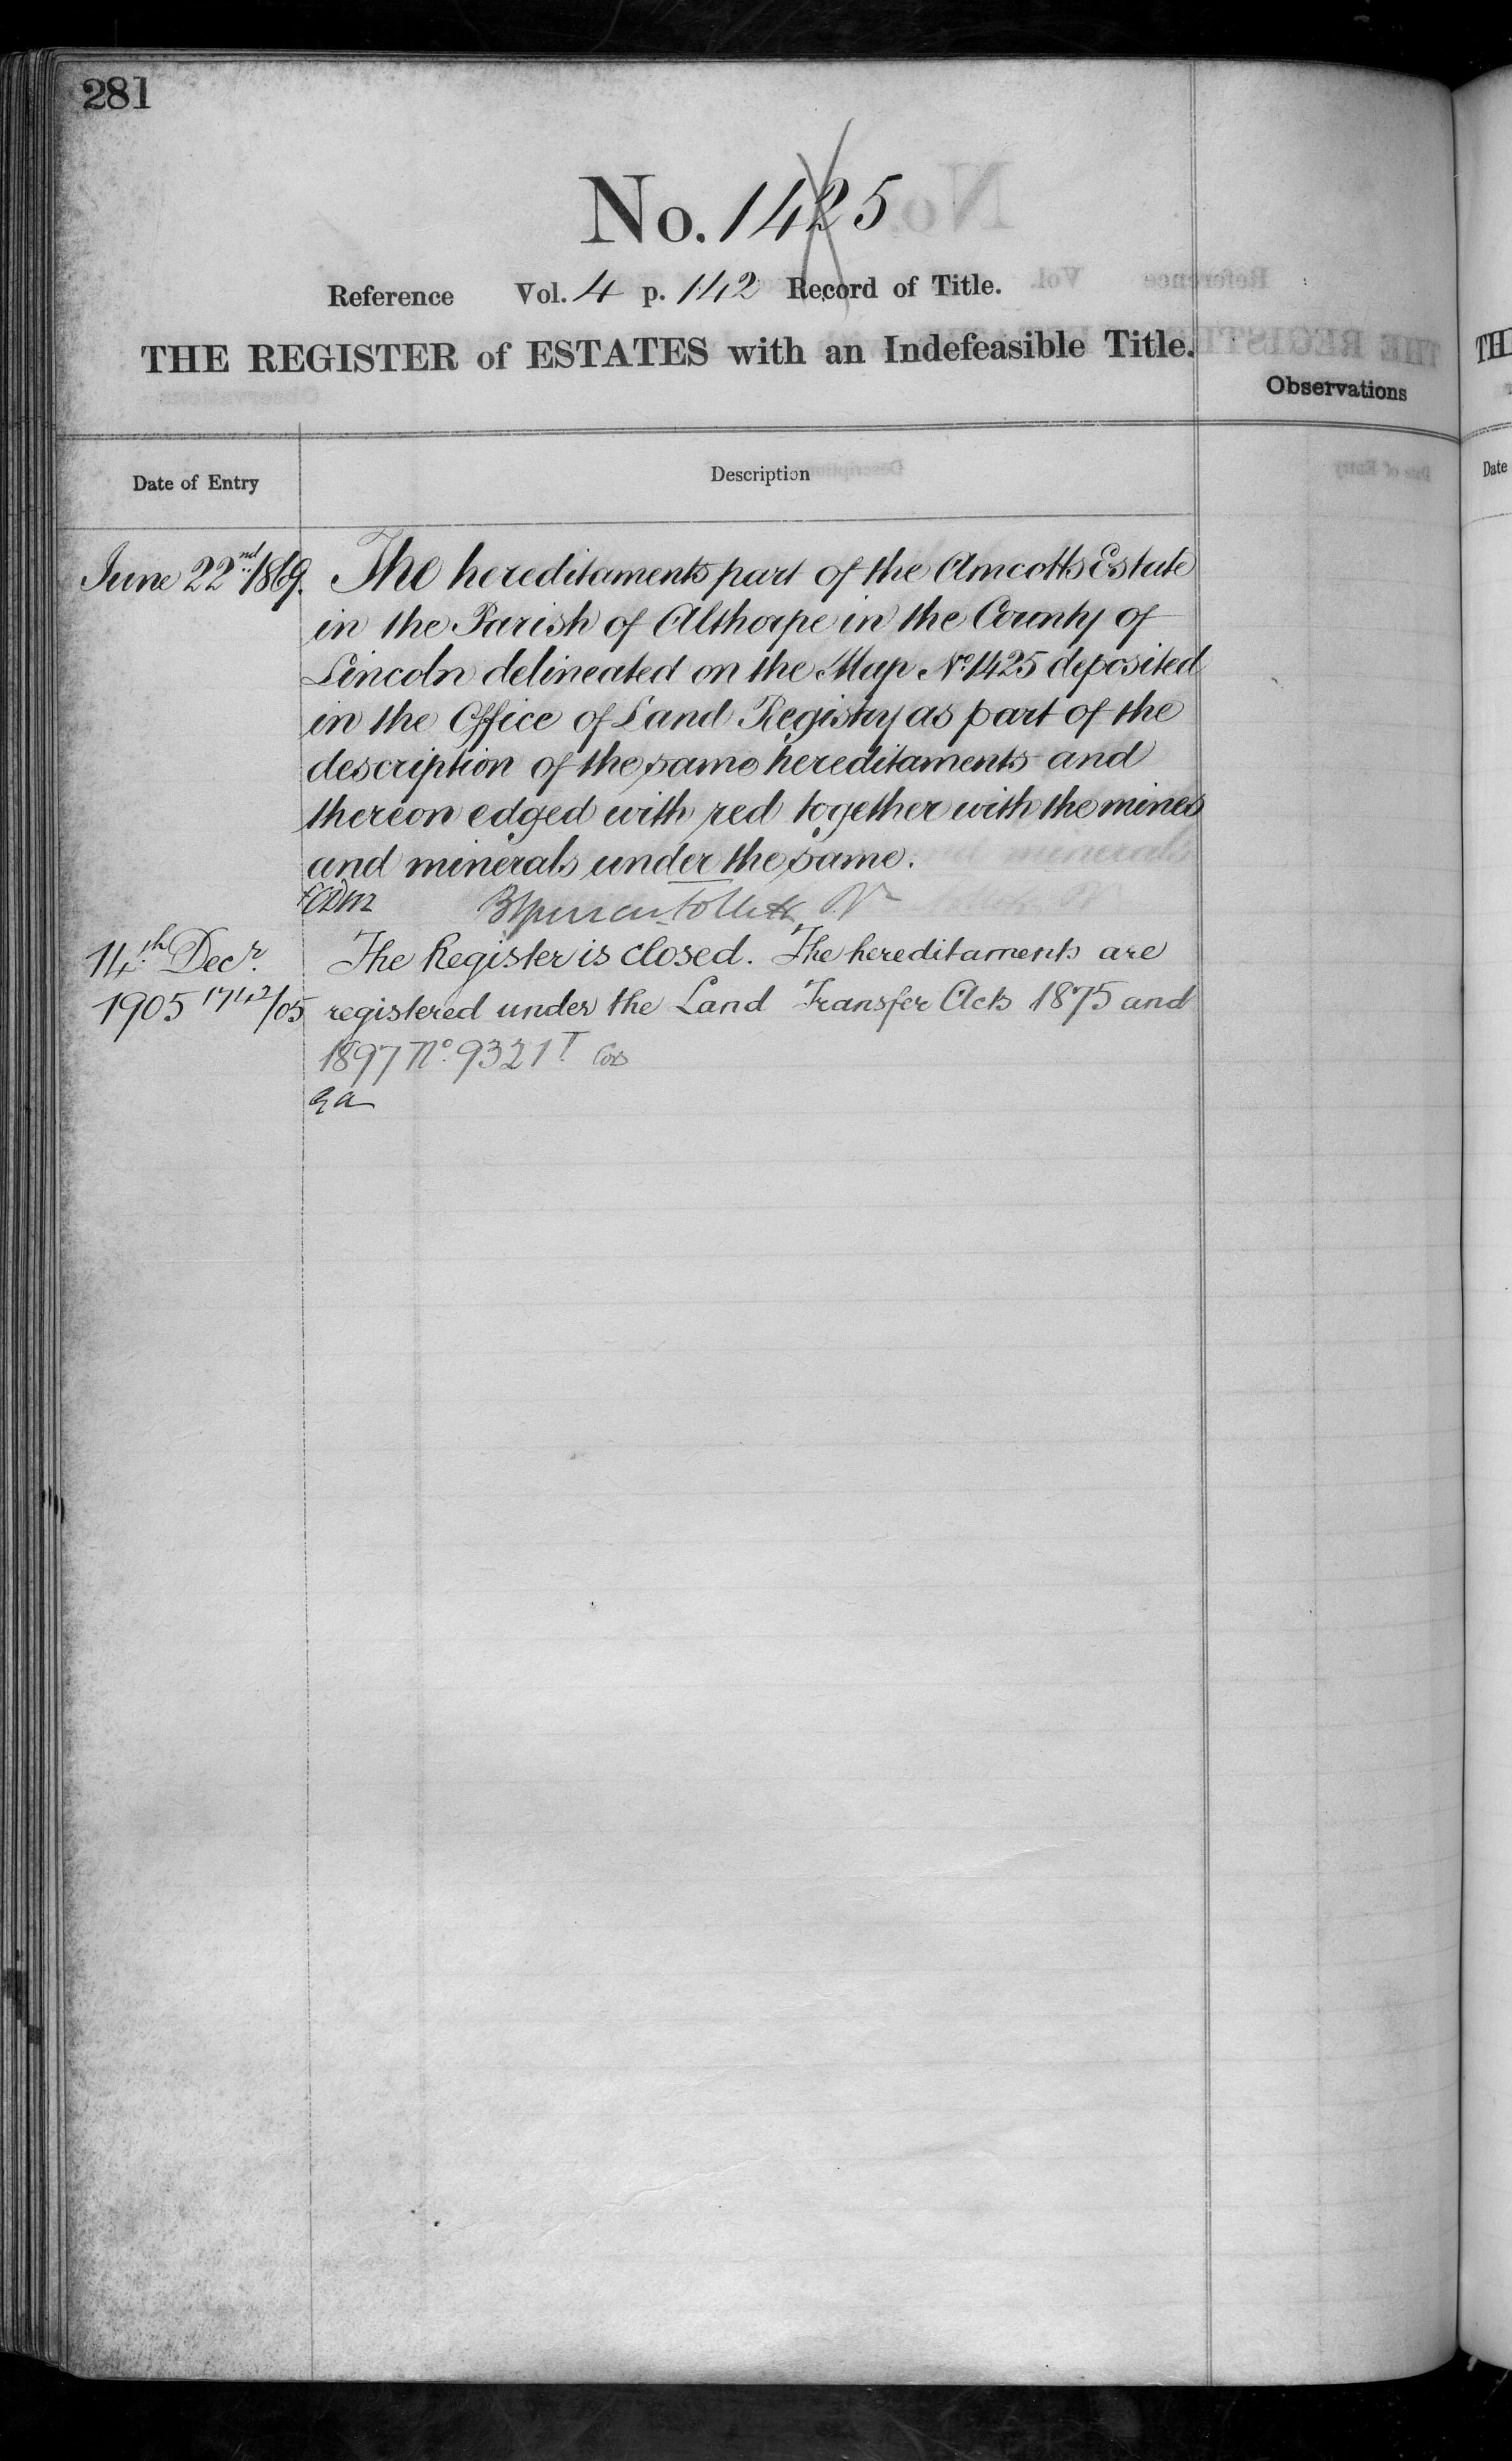 281
No. 1425
Reference Vol. 4 p. 142 Record of Title.
THE REGISTER of ESTATES with an Indefeasible Title.
Observations
Date of Entry
Description
June 22nd 1869. The hereditaments part of the Amcotts Estate
in the Parish of Althorpe in the County of
Lincoln delineated on the Map No. 1425 deposited
in the Office of Land Registry as part of the
description of the same hereditaments and
thereon edged with red together with the mines
and minerals under the same.
Follett
14th Decr. The Register is closed. The hereditaments are
1905 registered under the Land Transfer Acts 1875 and
1897 No. 9321
TH
Date